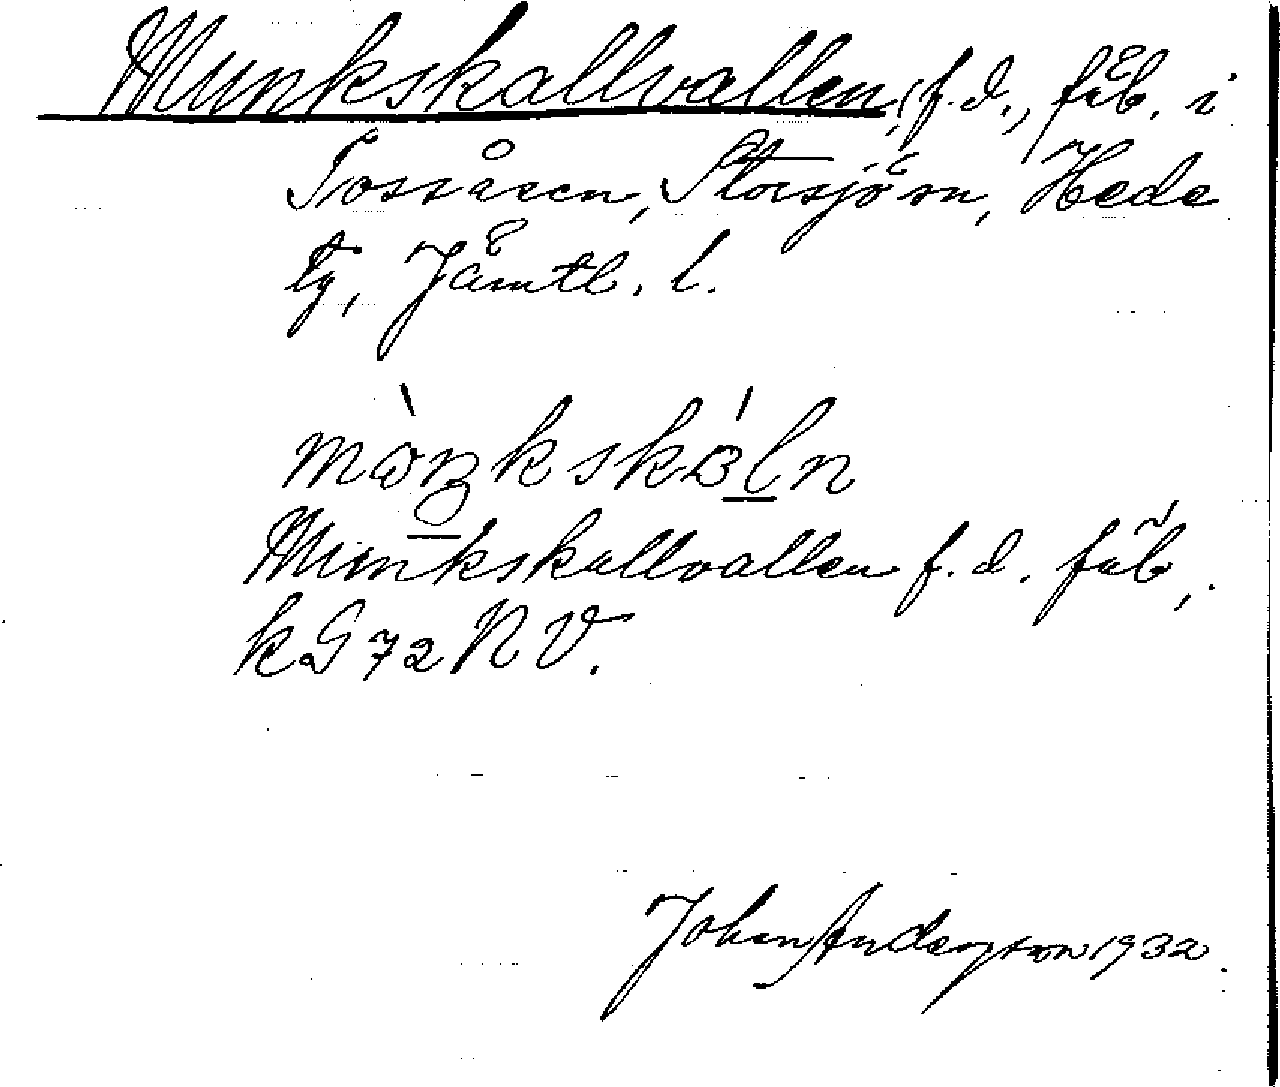 Munkskallvallen, f.d., fäb. i
Tossåsen, Storsjö sn, Hede
tg, Jämtl. l.
Munkskallvallen f. d. fäb,.
kG72NV.
Johan Anderson 1932.